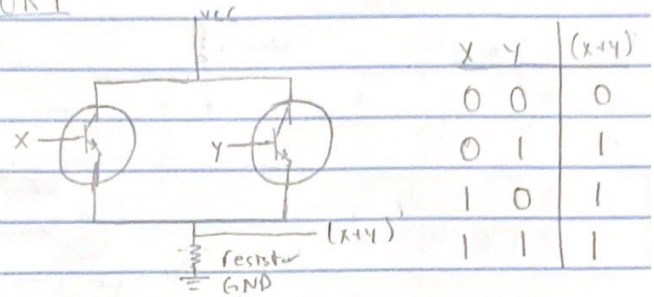 VCC
X
Y
(x+y)
resistor
GND
X Y (x+y)
0 0 0
0 1 1
1 0 1
1 1 1